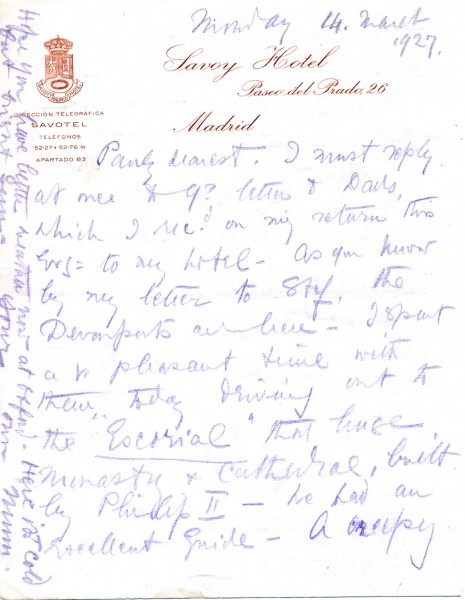 Monday 14. March
1927.
Savoy Hotel
Paseo del Prado, 26
Madrid
DIRECCION TELEGRAFICA
SAVOTEL
TELÉFONOS
52-27 • 52-76 M
APARTADO 83
dearest. I must reply
at once to yr letter & Dads,
which I recd on my return this
Evg = to my hotel - As you know
by my letter to Stef, the
Devonports are here - I spent
a v pleasant time with
them, today driving out to
the "Escorial" that huge
Monastry & Cathedral, built
by Philip II - We had an
excellent guide - A creepy
Hope you have better weather now at Oxford. Here it is cold
but bright
Mum.